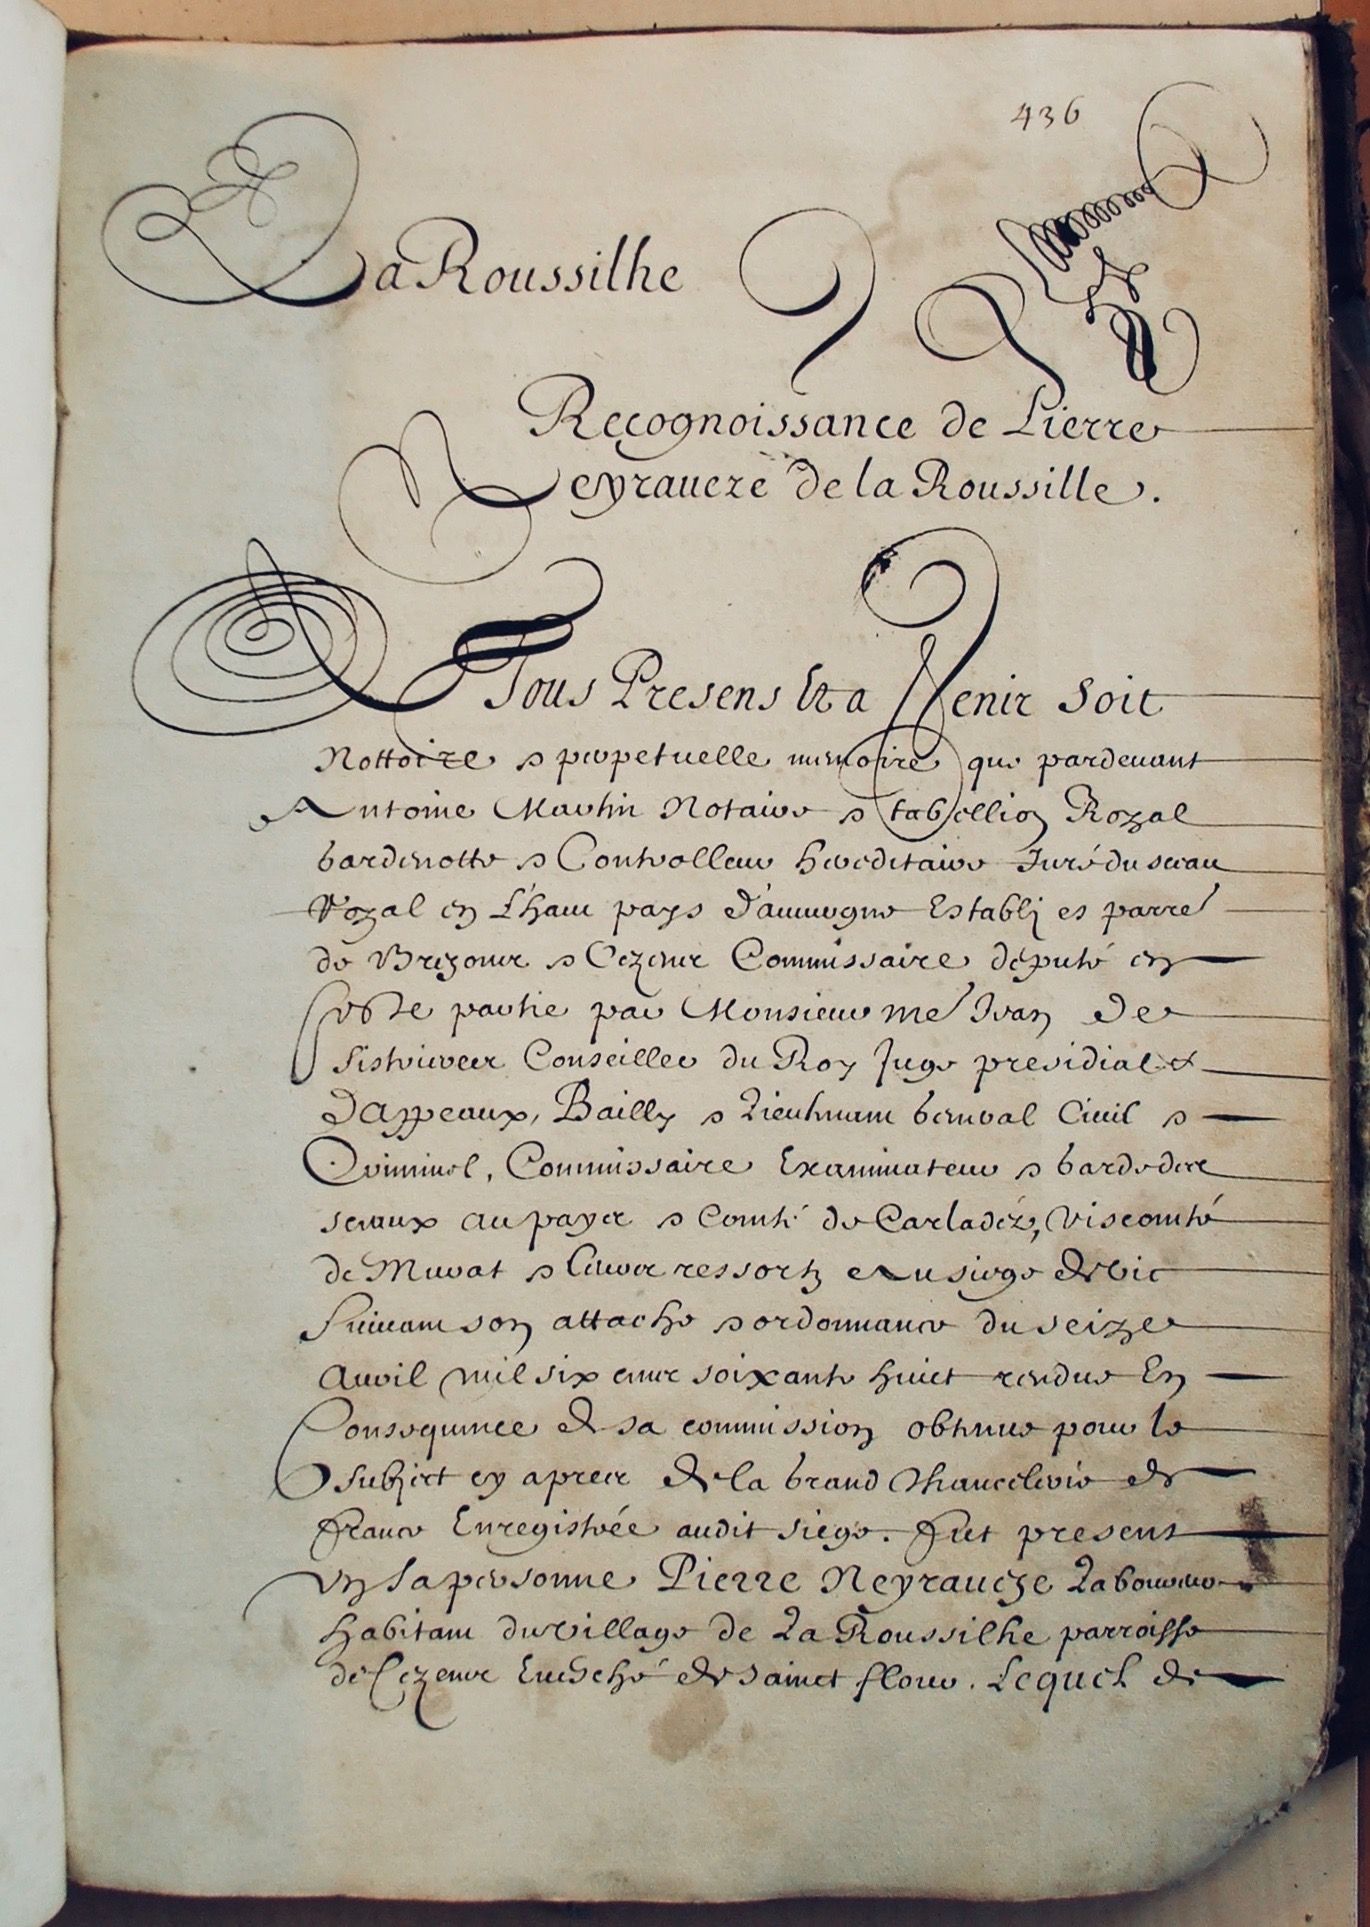 436
La Roussilhe
Recognoissance de Pierre
Neyraueze de la Roussille.
A Tous Presens Et a Venir Soit
Nottoire & perpetuelle memoire que pardeuant
Antoine Martin Notaire & tabellion Royal
gardenotte & Controlleur hereditaire Juré du seau
Royal en L'haut pays d'auuergne Estably es parres
de Brezons & Cezens Commissaire député en
Ceste partie par Monsieur me Jean de
Sistrieres Conseiller du Roy Juge presidial &
Dappeaux, Bailly & Lieutenant general Ciuil &
Criminel, Commissaire Examinateur & garde des
seaux au payis & Comté de Carladéz, Viscomté
de Murat & leurs ressortz au siege de vic
Suiuant son attache & ordonnance du seize
Auril mil six cens soixante huict rendue En
Consequence de sa commission obtenue pour le
subject cy apres de la grand Chancelerie de
france Enregistrée audit siege. fut present
en sa personne Pierre Neyraueze Laboureur
habitant du village de La Roussilhe parroisse
de Cezens Euesché de sainct flour. Lequel de